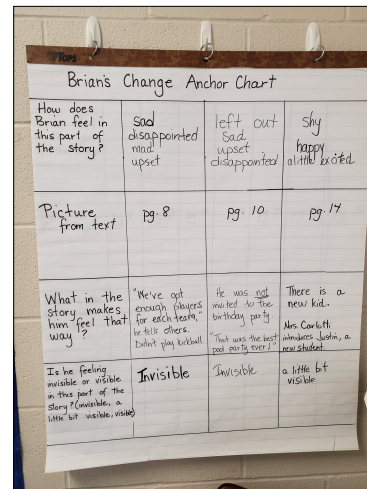 TOPS
Brian's Change Anchor Chart
How does
Brian feel in
this part of
the story?
sad
disappointed
mad
upset
left out
sad
upset
disappointed
shy
happy
a little excited
Picture
from text
pg. 8
pg. 10
pg. 14
What in the
story makes
him feel that
way?
"We've got
enough players
for each team,"
he tells others.
Didn't play kickball.
He was not
invited to the
birthday party.
"That was the best
pool party ever!"
There is a
new kid.
Mrs. Carlotti
introduces Justin, a
new student.
Is he feeling
invisible or visible
in this part of the
story? (invisible, a
little bit visible, visible)
Invisible
Invisible
a little bit
visible